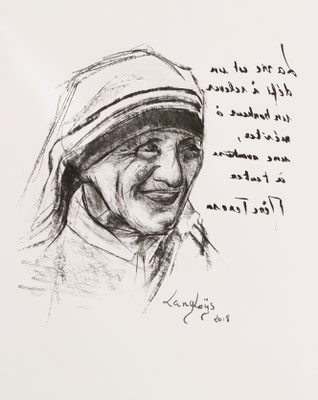 La vie est un
défi à relever
un bonheur à
mériter,
une aventure
à tenter
Mère Teresa
Langloÿs
2018